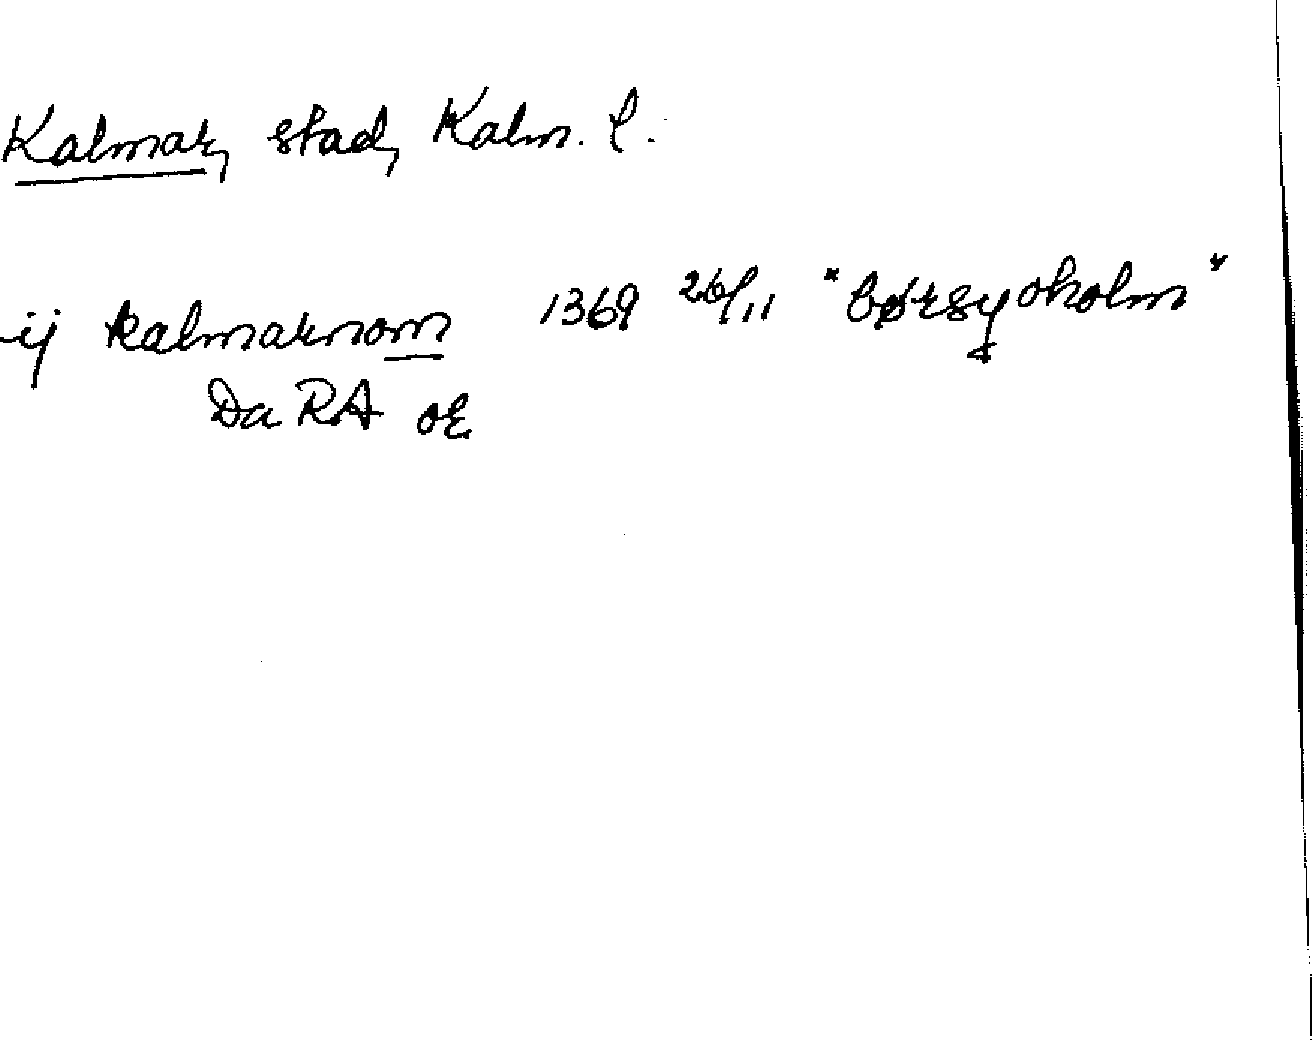 Kalmar, stad, Kalm. l.
ij kalmarnom 1369 26/11 "børsyoholm"
Da RA or